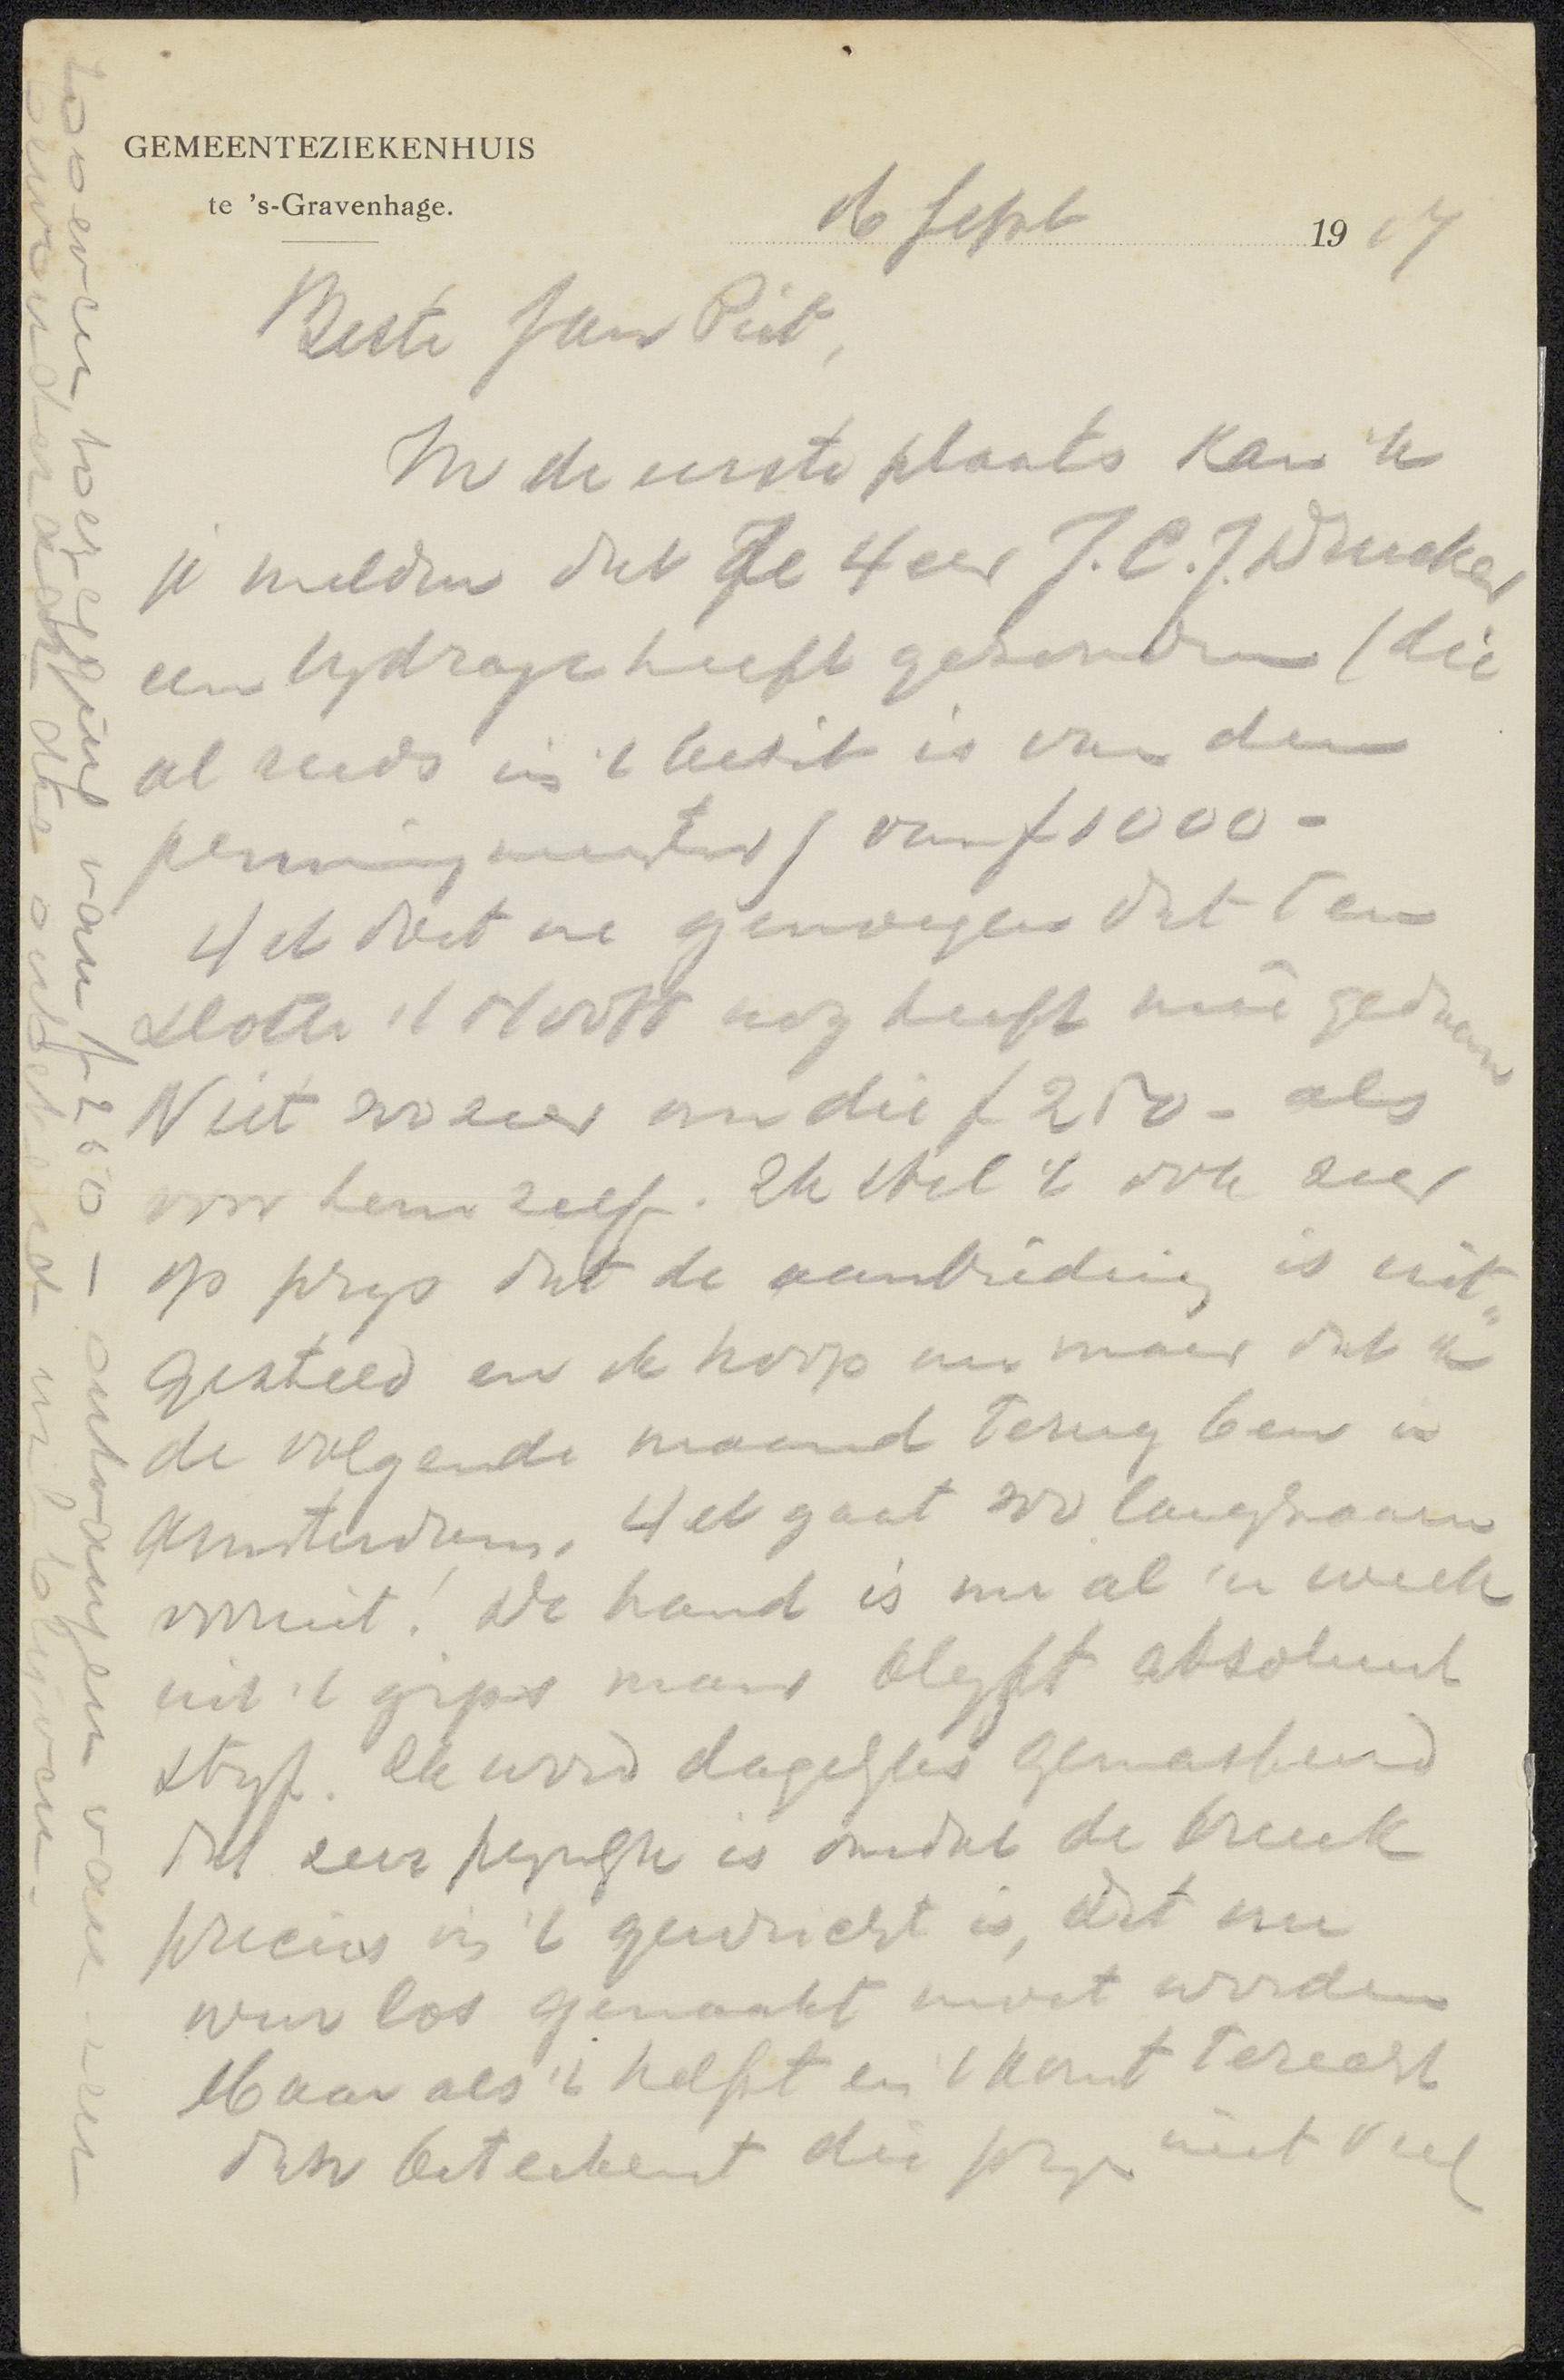 GEMEENTEZIEKENHUIS
te 's-Gravenhage.
16 Sept 1917
Beste Jan Piet,
In de eerste plaats kan 'k
je melden dat de Heer J.C.J. Drucker
een bydrage heeft gezonden (die
al reeds in 't bezit is van den
penningmeester) van f 1000-
Het doet me genoegen dat ten
slotte 't Hooft nog heeft meê gedaan
Niet zoo zeer om die f 250- als
voor hem zelf. Ik stel 't ook zeer
op prys dat de aanbieding is uit"
gesteld en ik hoop nu maar dat "k
de volgende maand terug ben in
Amsterdam. Het gaat zoo langzaam
vooruit! De hand is nu al 'n week
uit 't gips maar blyft absoluut
styf. Ik word dagelyks gemasseerd
dat zeer pynlyk is omdat de breuk
precies in 't gewricht is, dat nu
weer los gemaakt moet worden
Maar als 't helpt en 't komt terecht
dan beteekent die pyn niet veel
Zoo even nog eene gift van f 250 — ontvangen van een
bewonderaar die onbekend wil blijven.